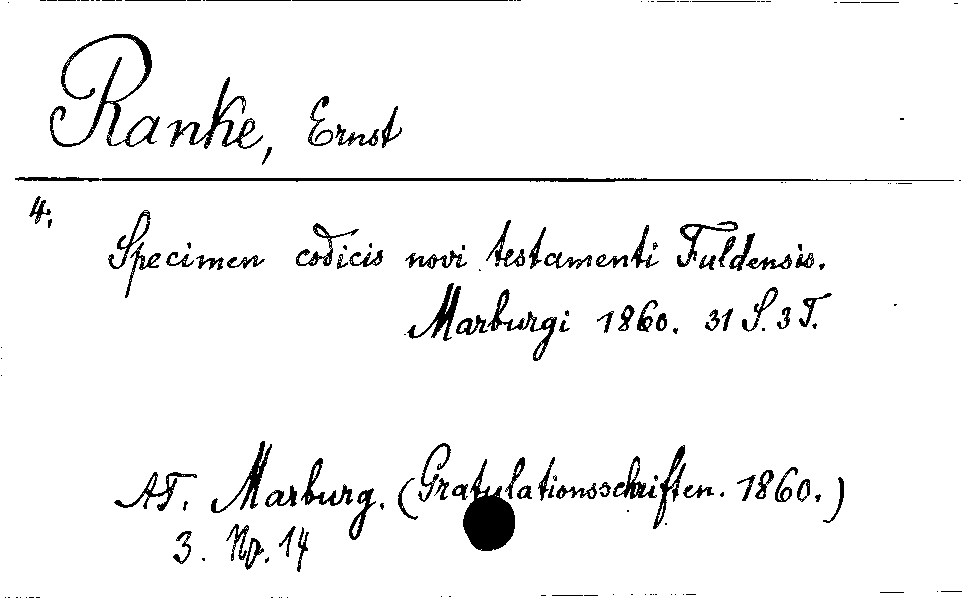 Ranke, Ernst
4:
Specimen codicis novi testamenti Fuldensis.
Marburgi 1860. 31 S. 3 T.
AT. Marburg. (Gratulationsschriften. 1860.)
3. No. 14